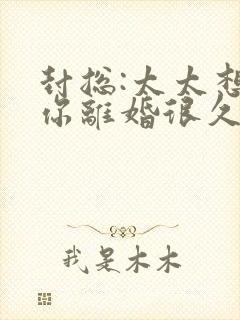 封总:太太想
你離婚很久
我是木木